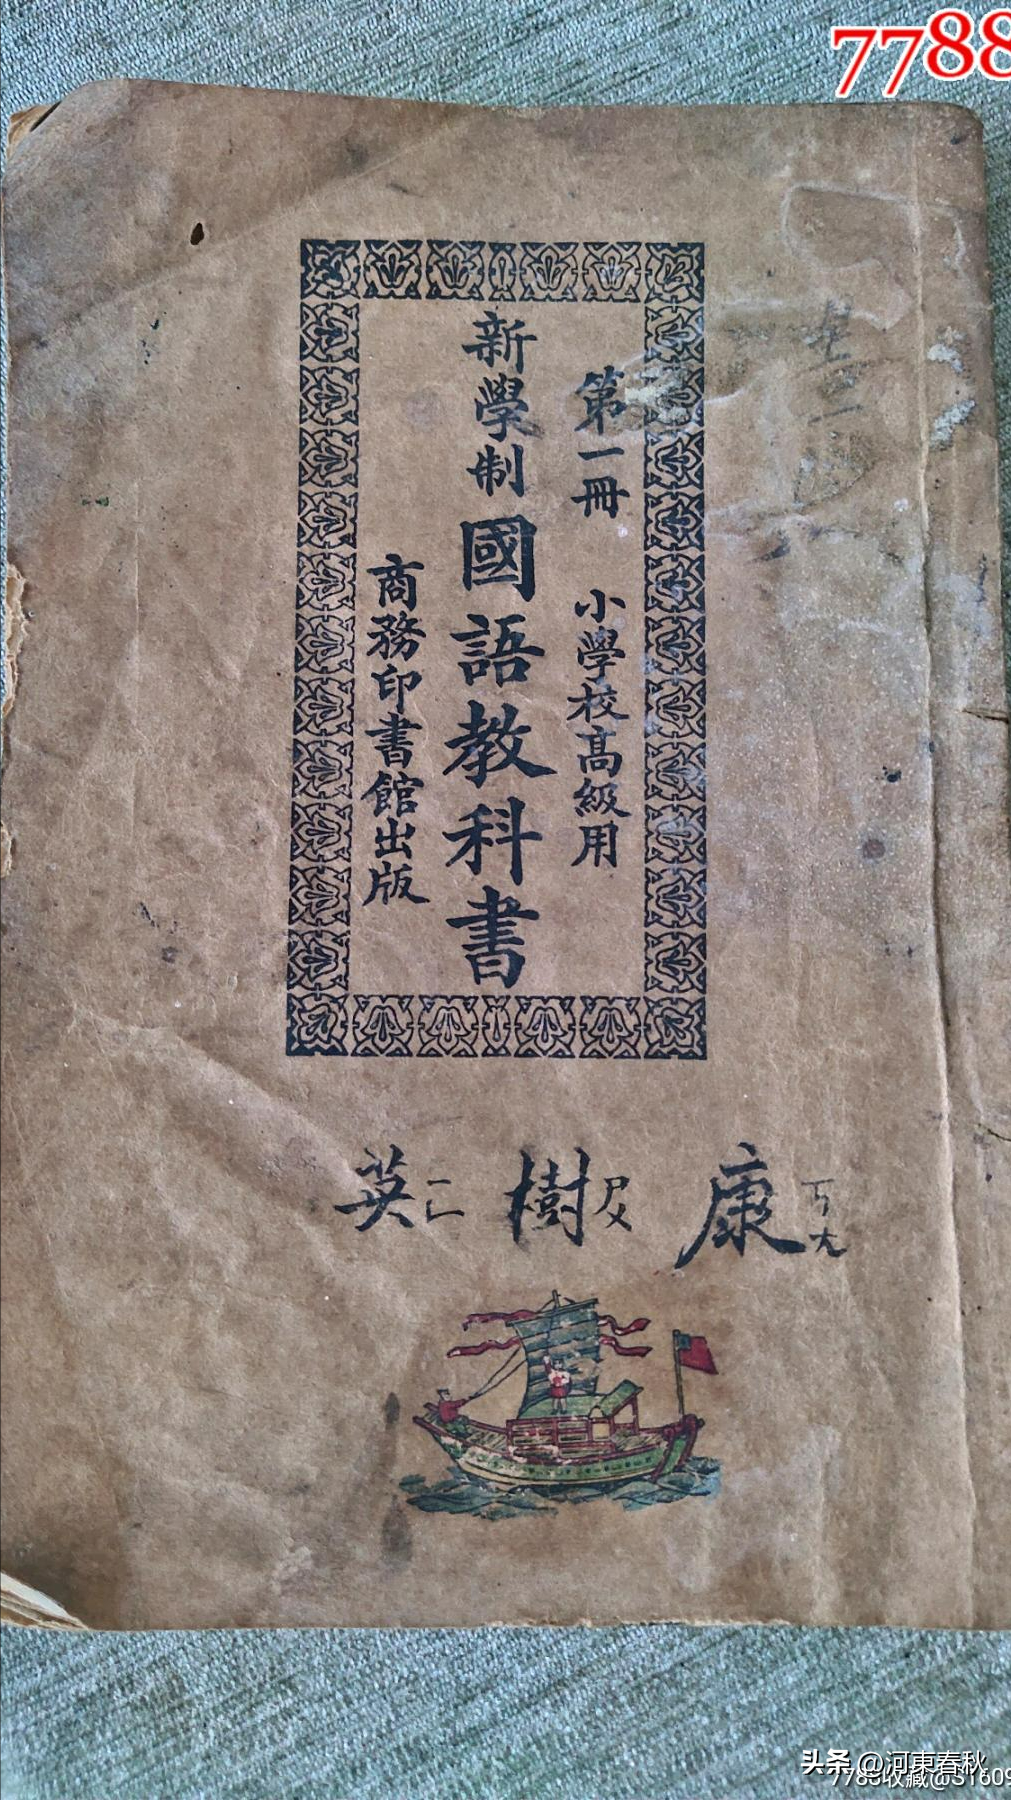 7788
第一冊 小學校高級用
新學制國語教科書
商務印書館出版
康ㄎㄤ 樹ㄕㄨ 英ㄧㄥ
头条 @河東春秋
7788收藏@S1609